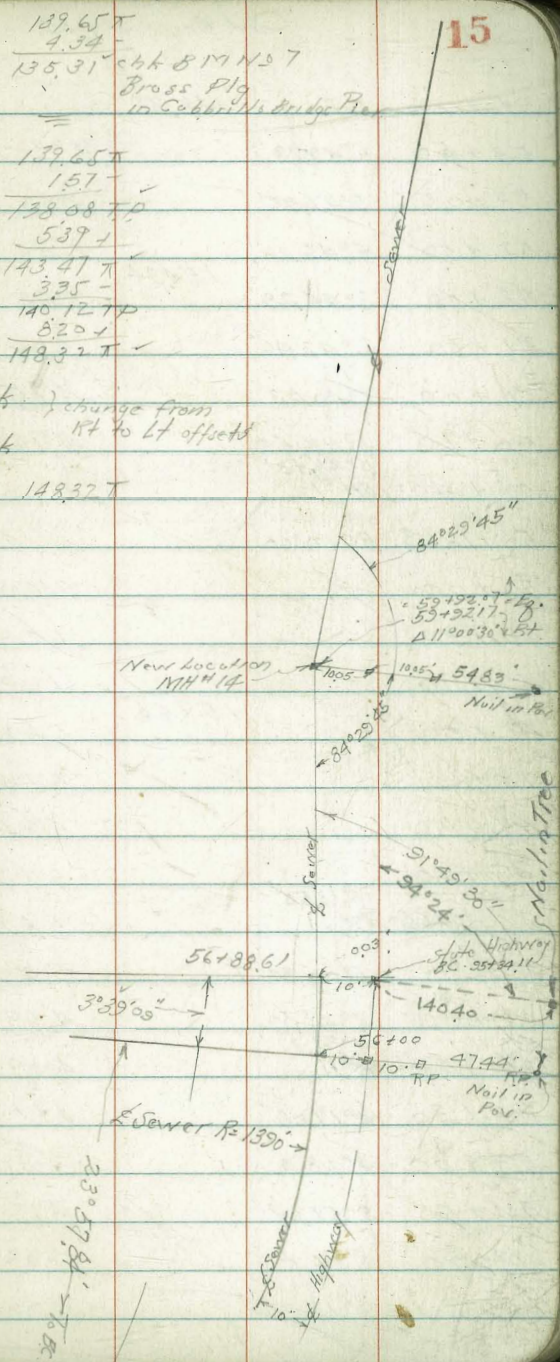 15
139.65 π
4.34 -
135.31 chk B M No 7
Brass Plg
in Gabbrills Bridge Pier
139.65 π
1.57 -
138.08 T.P.
5.39 +
143.47 π
3.35 -
140.12 TP
8.20 +
148.32 π
k } change from
Rt to Lt offsets
k
148.32 π
Sewer
℄
84°29'45"
59+92.07 = Eq.
59+92.17
Δ 11°00'30" Rt
New Location
MH #14
10.05 10.05' 54.83'
Nail in Pav.
84°29'45"
Nail in Tree
℄ Sewer
91°49'30"
94°24'
0.03'
State Highway
B.C. 55+34.11
56+88.61
10'
140.40
3°39'09"
56+00
10' 10' 47.44'
RP R.P.
Nail in
Pav.
℄ Sewer R=1390'
23°57'
℄ Sewer
10'
℄ Highway